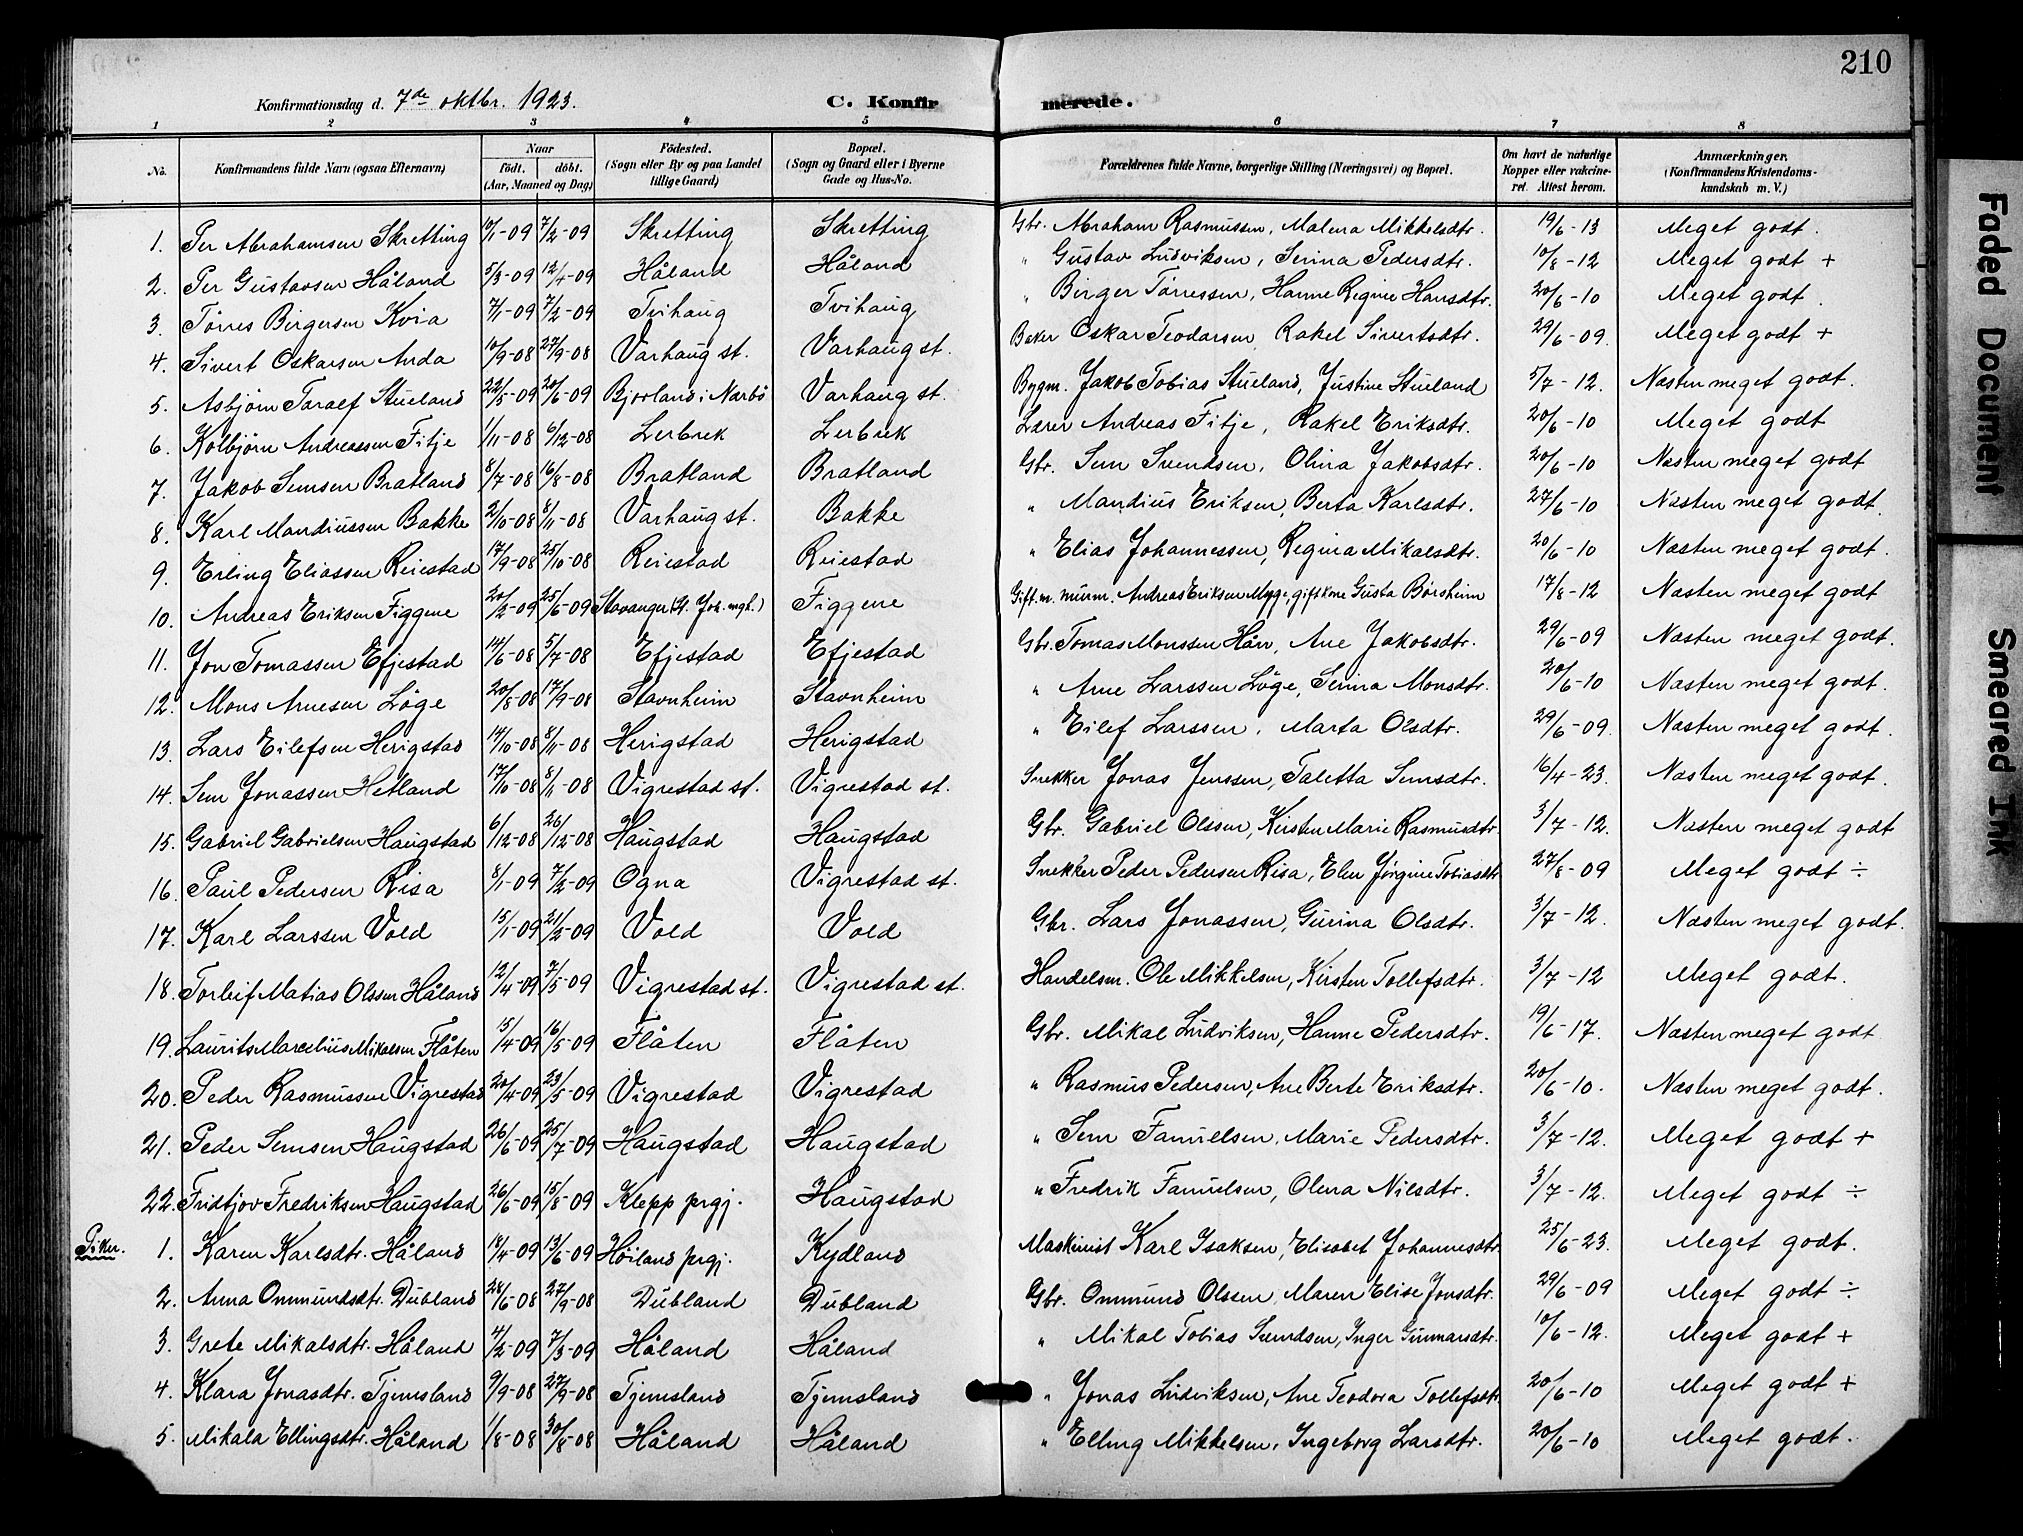 210
Konfirmationsdag d. 7de oktbr. 1923. C. Konfirmerede.
1 2 3 4 5 6 7 8
No. | Konfirmandens fulde Navn (ogsaa Efternavn) | Naar födt. döbt. (Aar, Maaned og Dag) | Födested. (Sogn eller By og paa Landet tillige Gaard) | Bopæl. (Sogn og Gaard eller i Byerne Gade og Hus-No. | Forældrenes fulde Navne, borgerlige Stilling (Næringsvei) og Bopæl. | Om havt de naturlige Kopper eller vakcineret. Attest herom. | Anmærkninger. (Konfirmandens Kristendomskundskab m. V.)
1. Per Abrahamsen Skretting 10/1-09 7/2-09 Skretting Skretting Gbr. Abraham Rasmussen, Malena Mikkelsdtr. 19/6-13 Meget godt.
2. Per Gustavsen Håland 5/3-09 12/4-09 Håland Håland " Gustav Ludviksen, Serina Pedersdtr. 10/8-12 Meget godt +
3. Törres Birgersen Kvia 7/1-09 7/2-09 Tvihaug Tvihaug " Birger Törressen, Hanne Regine Hansdtr. 20/6-10 Meget godt.
4. Sivert Oskarsen Anda 10/9-08 27/9-08 Varhaug st. Varhaug st. Baker Oskar Teodorsen, Rakel Sivertsdtr. 29/6-09. Meget godt +
5. Asbjörn Taralf Stueland 22/5-09 20/6-09 Bjorland i Narbö Varhaug st. Bygm. Jakob Tobias Stueland, Justine Stueland 5/7-12. Næsten meget godt.
6. Kolbjörn Andreassen Fitje 1/11-08 6/12-08 Lerbrek Lerbrek Lærer Andreas Fitje, Rakel Eriksdtr. 20/6-10 Meget godt
7. Jakob Semsen Bratland 8/7-08 16/8-08 Bratland Bratland Gbr. Sem Svendsen, Olina Jakobsdtr. 20/6-10 Næsten meget godt
8. Karl Mandiussen Bakke 2/10-08 8/11-08 Varhaug st. Bakke " Mandius Eriksen, Berta Karlsdtr. 27/6-10 Næsten meget godt.
9. Erling Eliassen Reiestad 17/9-08 25/10-08 Reiestad Reiestad " Elias Johannessen, Regina Mikalsdtr. 20/6-10 Næsten meget godt.
10. Andreas Eriksen Figgene 20/2-09 25/6-09 Stavanger (St. Joh. mgh.) Figgene Gift m. murm. Andreas Eriksen Myge, gift kone Gusta Börsheim 17/8-12 Næsten meget godt
11. Jon Tomassen Efjestad 14/6-08 5/7-08 Efjestad Efjestad Gbr. Tomas Monssen Hårr, Ane Jakobsdtr. 29/6-09 Næsten meget godt.
12. Mons Arnesen Löge 20/8-08 17/9-08 Stavnheim Stavnheim " Arne Larssen Löge, Serina Monsdtr. 20/6-10 Næsten meget godt.
13. Lars Eilefsen Herigstad 14/10-08 8/11-08 Herigstad Herigstad " Eilef Larssen, Marta Olsdtr. 29/6-09. Næsten meget godt.
14. Sem Jonassen Hetland 17/10-08 8/11-08 Vigrestad st. Vigrestad st. Snekker Jonas Jenssen, Taletta Semsdtr. 16/4-23. Næsten meget godt.
15. Gabriel Gabrielsen Haugstad 6/12-08 26/12-08 Haugstad Haugstad Gbr. Gabriel Olsson, Kirsten Marie Rasmusdtr. 3/7-12. Næsten meget godt
16. Paul Pedersen Risa 8/1-09 7/2-09 Ogna Vigrestad st. Snekker Peder Pedersen Risa, Elen Jörgine Tobiasdtr 27/8-09 Meget godt ÷
17. Karl Larssen Vold 15/1-09 21/2-09 Vold Vold Gbr. Lars Jonassen, Gurina Olsdtr. 3/7-12. Næsten meget godt.
18. Torleif Matias Olssen Håland 12/4-09 7/5-09 Vigrestad st. Vigrestad st. Handelsm. Ole Mikkelsen, Kirsten Tollefsdtr. 3/7-12 Meget godt.
19. Laurits Marcelius Mikalsen Flåten 15/4-09 16/5-09 Flåten Flåten Gbr. Mikal Ludviksen, Hanne Pedersdtr. 19/6-17. Næsten meget godt
20. Peder Rasmussen Vigrestad 20/4-09 23/5-09 Vigrestad Vigrestad " Rasmus Pedersen, Ane Berte Eriksdtr. 20/6-10. Næsten meget godt.
21. Peder Semsen Haugstad 26/6-09 25/7-09 Haugstad Haugstad " Sem Fanuelsen, Marie Pedersdtr. 3/7-12. Meget godt +
22. Fridtjov Fredriksen Haugstad 26/6-09 15/8-09 Klepp prgj. Haugstad " Fredrik Fanuelsen, Olena Nilsdtr. 3/7-12. Meget godt ÷
Piker. 1. Karen Karlsdtr. Håland 14/4-09 13/6-09 Höiland prgj. Kydland Maskinist Karl Isaksen, Elisabet Johannesdtr. 25/6-23. Meget godt.
2. Anna Ommundsdtr. Dubland 28/6-08 27/9-08 Dubland Dubland Gbr. Ommund Olssen, Maren Elise Jonsdtr. 29/6-09 Meget godt ÷
3. Grete Mikalsdtr. Håland 4/2-09 7/3-09 Håland Håland " Mikal Tobias Svendsen, Inger Gunnarsdtr. 10/6-12. Meget godt +
4. Klara Jonasdtr. Tjemsland 9/9-08 27/9-08 Tjemsland Tjemsland " Jonas Ludviksen, Ane Teodora Tollefsdtr. 20/6-10 Meget godt +
5. Mikala Ellingsdtr. Håland 1/8-08 30/8-08 Håland Håland " Elling Mikkelsen, Ingeborg Larsdtr. 20/6-10 Meget godt.
Faded Document
Smeared Ink